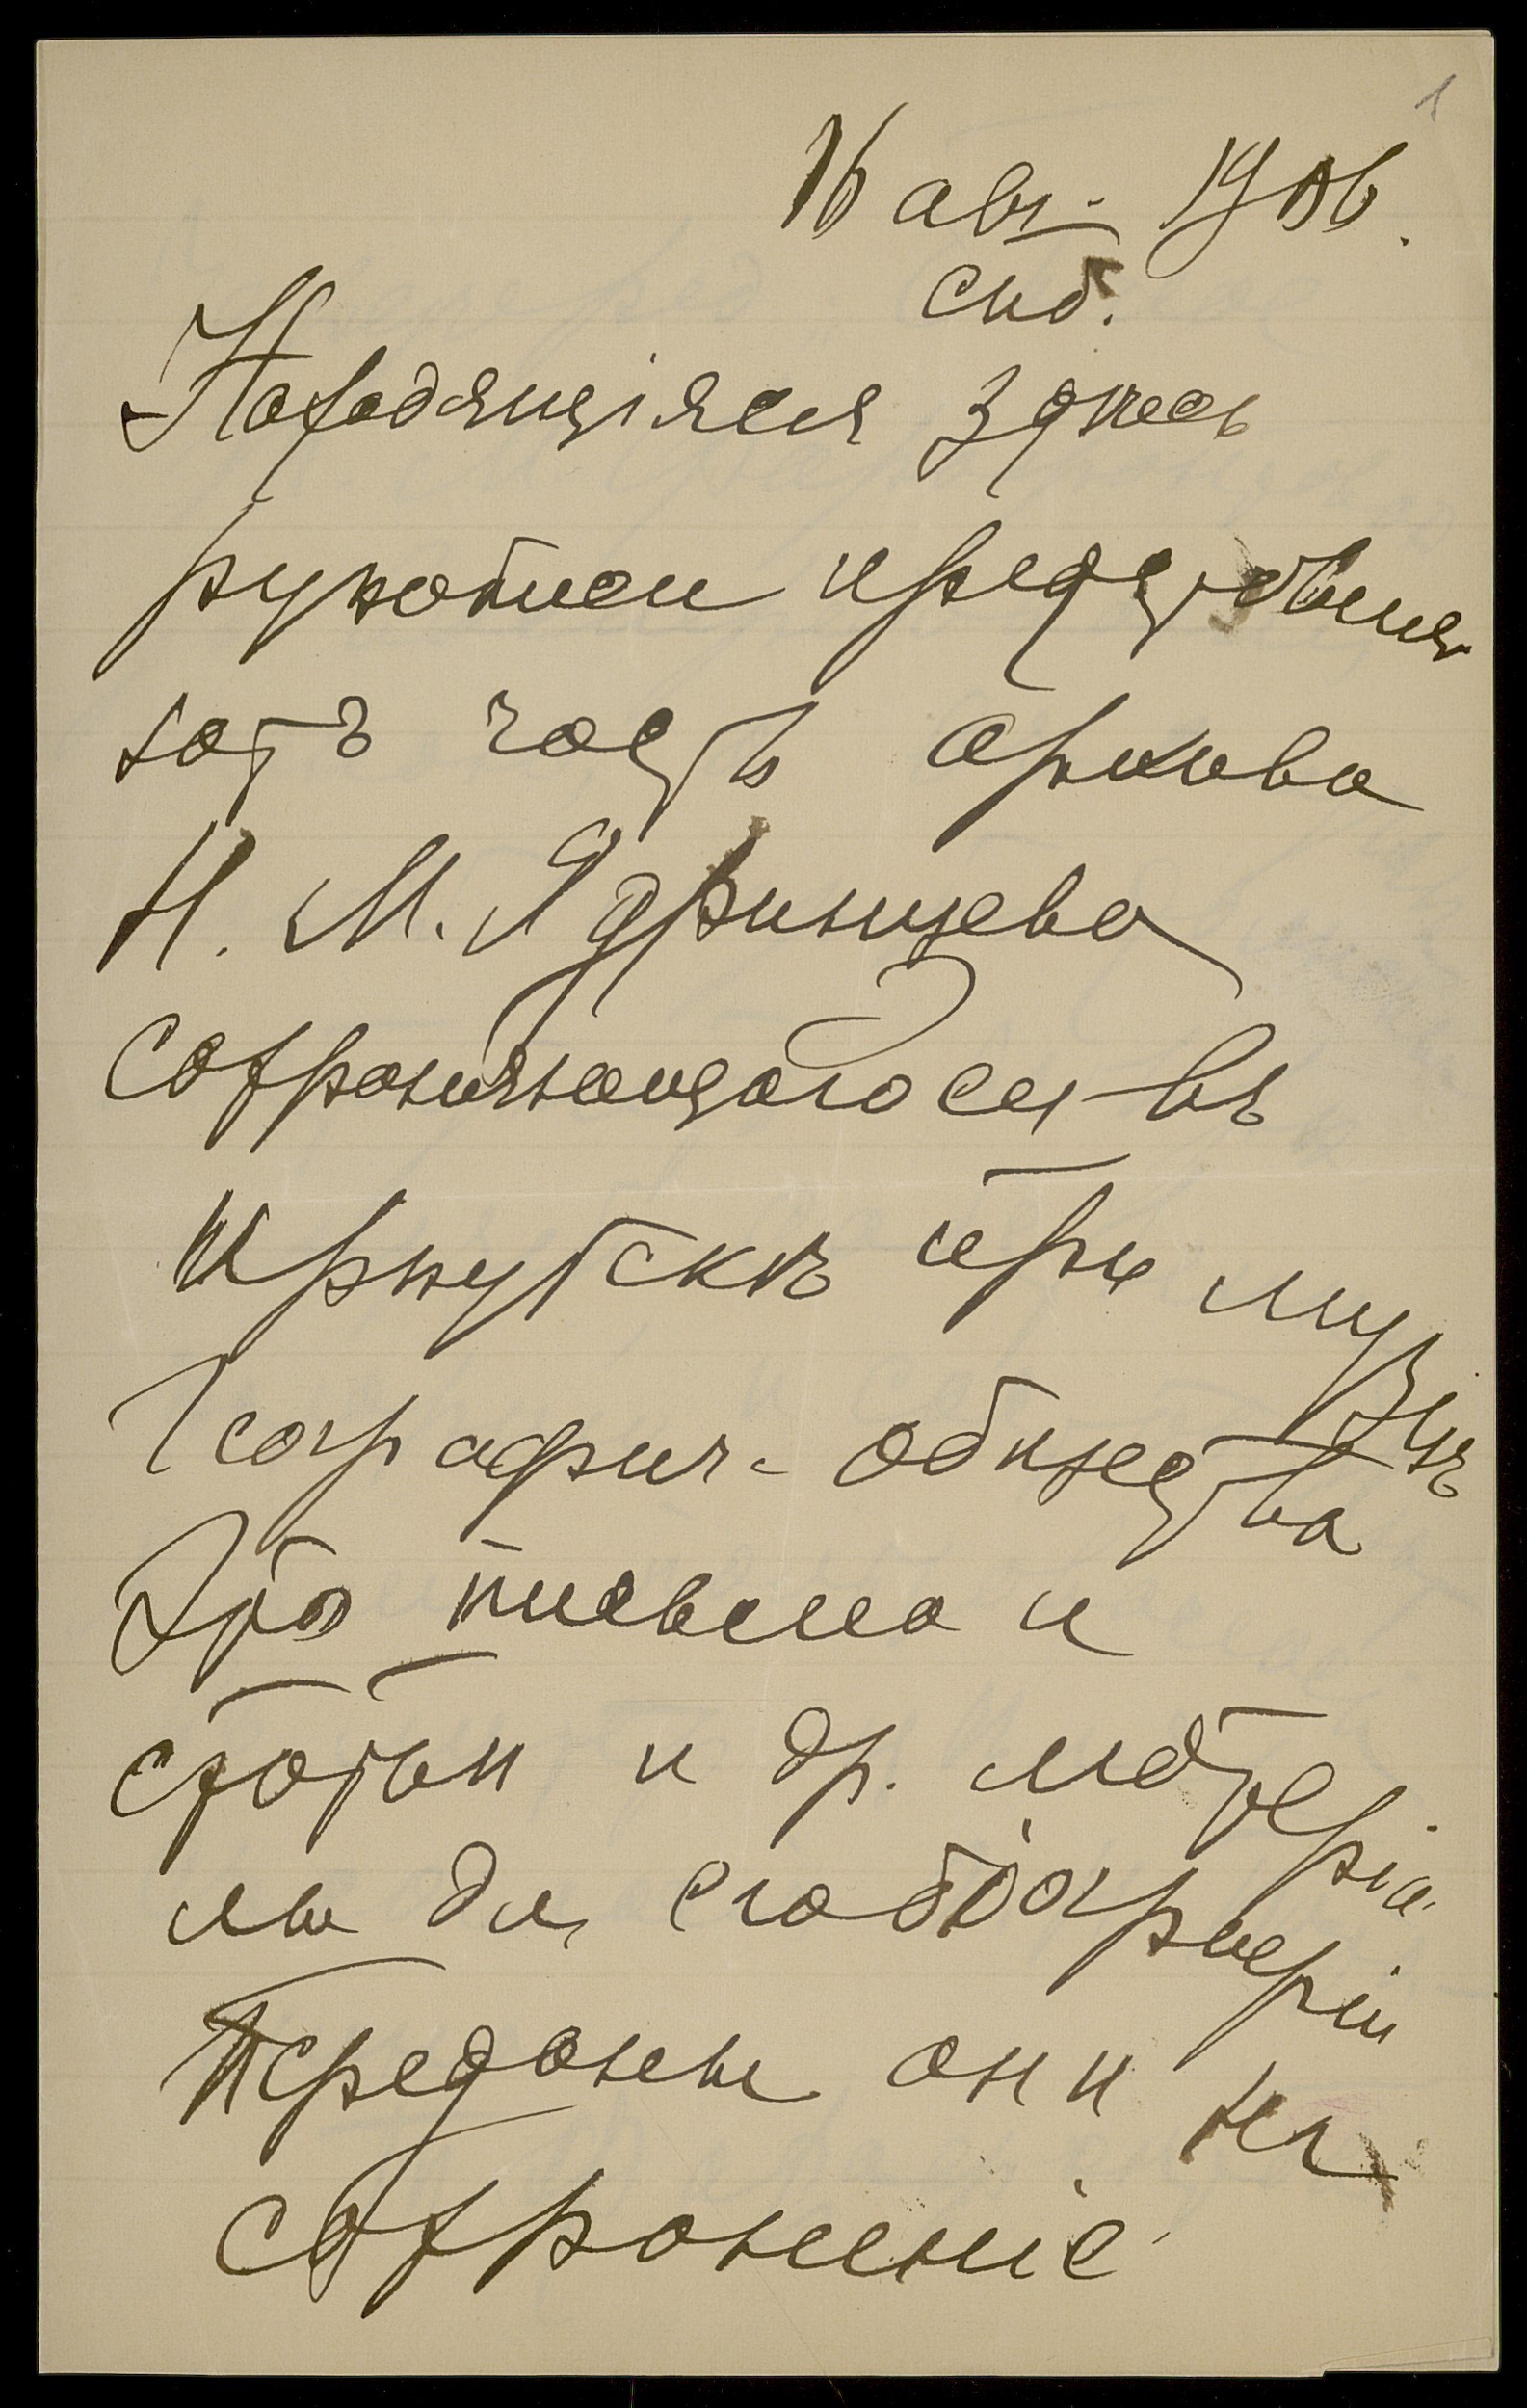 1
16 авг. 1906.
Спб.
Находящіяся здѣсь
рукописи представля
ютъ часть архива
Н. М. Ядринцева
сохраняющагося въ
Иркутскѣ при музеѣ
Географич. общества
Это письма и
статьи и др. матеріа
лы для его біографіи
Переданы они на
сохраненіе